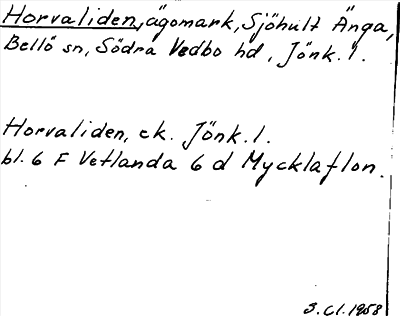 Horvaliden, ägomark, Sjöhult Änga,
Bellö sn, Södra Vedbo hd, Jönk. l.
Horvaliden, ek. Jönk. l.
bl. 6 F Vetlanda 6 d Mycklaflon.
3. Cl. 1958